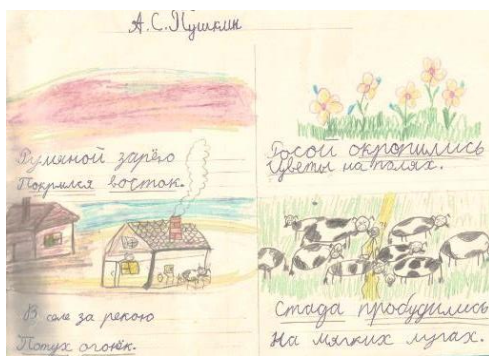 А.С.Пушкин
Румяной зарёю
Покрылся восток.
В селе за рекою
Потух огонёк.
Росой окропились
Цветы на полях.
Стада пробудились
На мягких лугах.